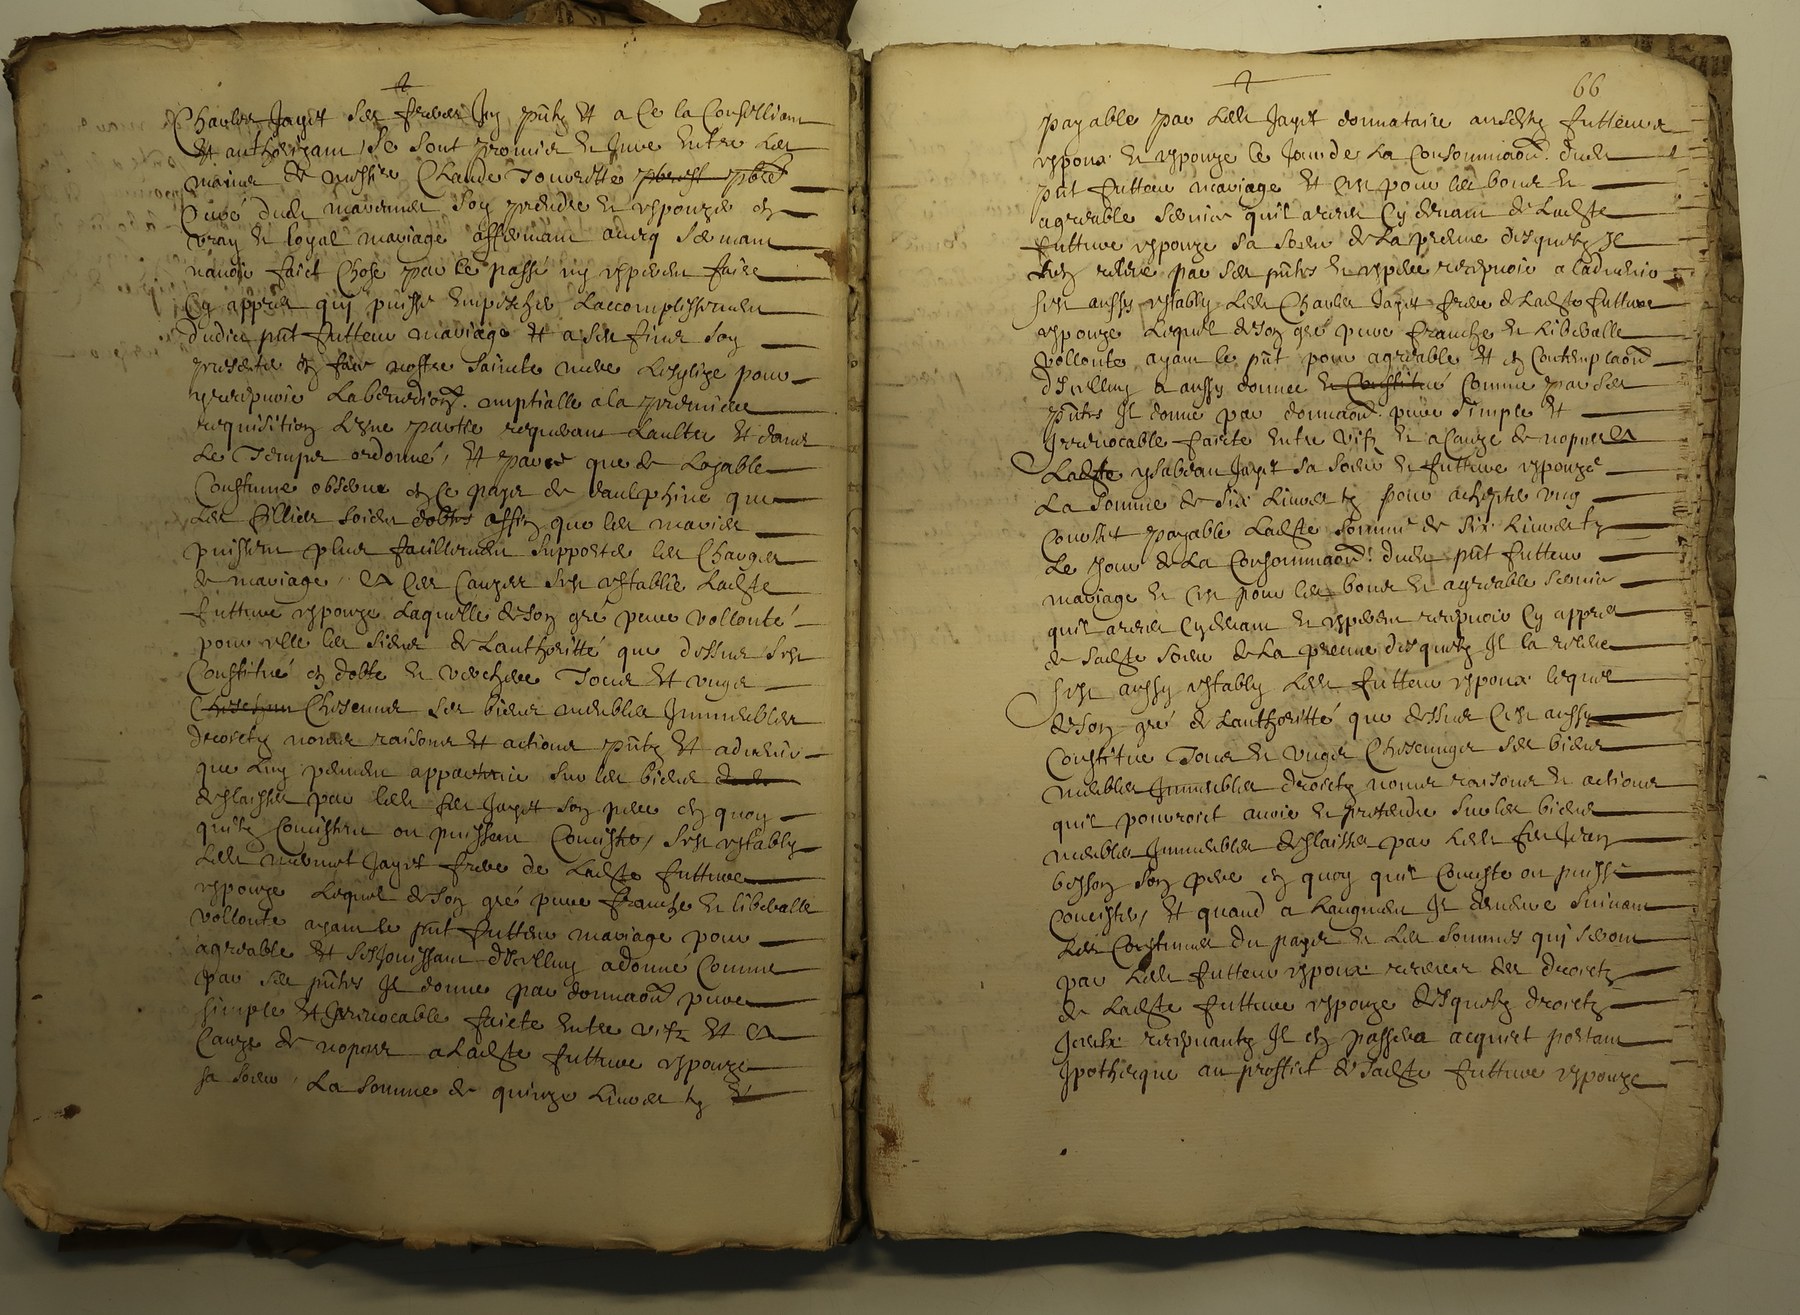 Charles Jayet ses freres Icy pñtz et a ce la Conseillant
et authorizant, se sont promis et Jure entre les
mains de messire Claude Jouvette pbre
Curé dudt soy prendre et espouzer en
vray et loyal mariage affermant avecq sermant
navoir faict chose par le passé ny esperer faire
Cy appres qui puisse empescher Laccomplissement
dudict pñt futteur mariage et a ses fins soy
presenter en face nostre saincte mere Lesglize pour
recepvoir La benedion. nuptialle a la premiere
requisition Lugne partie requerant Laultre et dans
Le Temps ordonné, et parce que de Loyable
Coustume observe en ce pays de daulphine que
Les filhies soient dobtes affin que les maries
puissent plus facillement supporter les Charges
de mariage, a ces Causes sest establie Ladte
futture espouze Laquelle de son gré pure vollonté
pour elle les siens de Lauthoritté que dessus sest
Constitué en dobte et verchere Tous et ungs
Chescuns ses biens meubles Immeubles
droictz noms raisons et actions pñtz et advenir
que Luy peuvent appartenir sur les biens
delaisses par ledt feu Jayet son pere en quoy
quilz Concistent ou puissent Concister, sest estably
Ledt Jayet frere de Ladte futture
espouze Lequel de son gré pure franche et liberalle
vollonte ayant le pñt futteur mariage pour
agreable et sesjouissant dIcelluy a donné Comme
par ses pñtes Il donne par donnaon pure
simple et Irrevocable faicte entre vifz et a
Cauze de nopces a Ladte futture espouze
sa soeur, La somme de quinze Livres tz
66
payable par Ledt Jayet donnataire ausdtz futteurs
espoux et espouze le Jour de La Consommaon. dudt
pñt futteur mariage et cest pour les bons et
agreable services quil a receu Cy devant de Ladte
futture espouze sa soeur de La preuve desquelz Il
Len relleve par ses pñtes et espere recepvoir a ladvenir
sest aussy estably Ledt Charles Jayet frere de Ladte futture
espouze Lequel de son gré pure franche et Liberalle
vollonte ayant le pñt pour agreable et en Contemplaon
dIcelluy a aussy donné Comme par ses
pñtes Il donne par donnaon. pure simple et
Irrevocable faicte entre vifz et a Cauze de nopces a
Ladte ysabeau Jayet sa soeur et futture espouze
La somme de six Livres tz pour achepter ung
Corsset payable Ladte somme de six Livres tz
Le jour de La Consommaon. dudt pñt futteur
mariage et cest pour les bons et agreable services
quil a receu Cy devant et espere recepvoir Cy appres
de sadte soeur de La preuve desquelz Il la relleve
sest aussy estably Ledt futteur espoux lequel
de son gré de Lauthoritté que dessus cest aussy
Constitue Tous et ungs Chescungs ses biens
meubles Immeubles droictz noms raisons et actions
quil pourroit avoir et pretendre sur les biens
meubles Immeubles delaisses par Ledt feu Jean
besson son pere en quoy quil Conciste ou puisse
Concister, et quand a Laugment Il demeure suivant
Les Coustumes du pays et Les sommes qui seront
par Ledt futteur espoux receues des droictz
de Ladte futture espouze desquelz droictz
Iceulx recepvantz Il en passera acquict portant
Ipotheque au proffict de sadte futture espouze